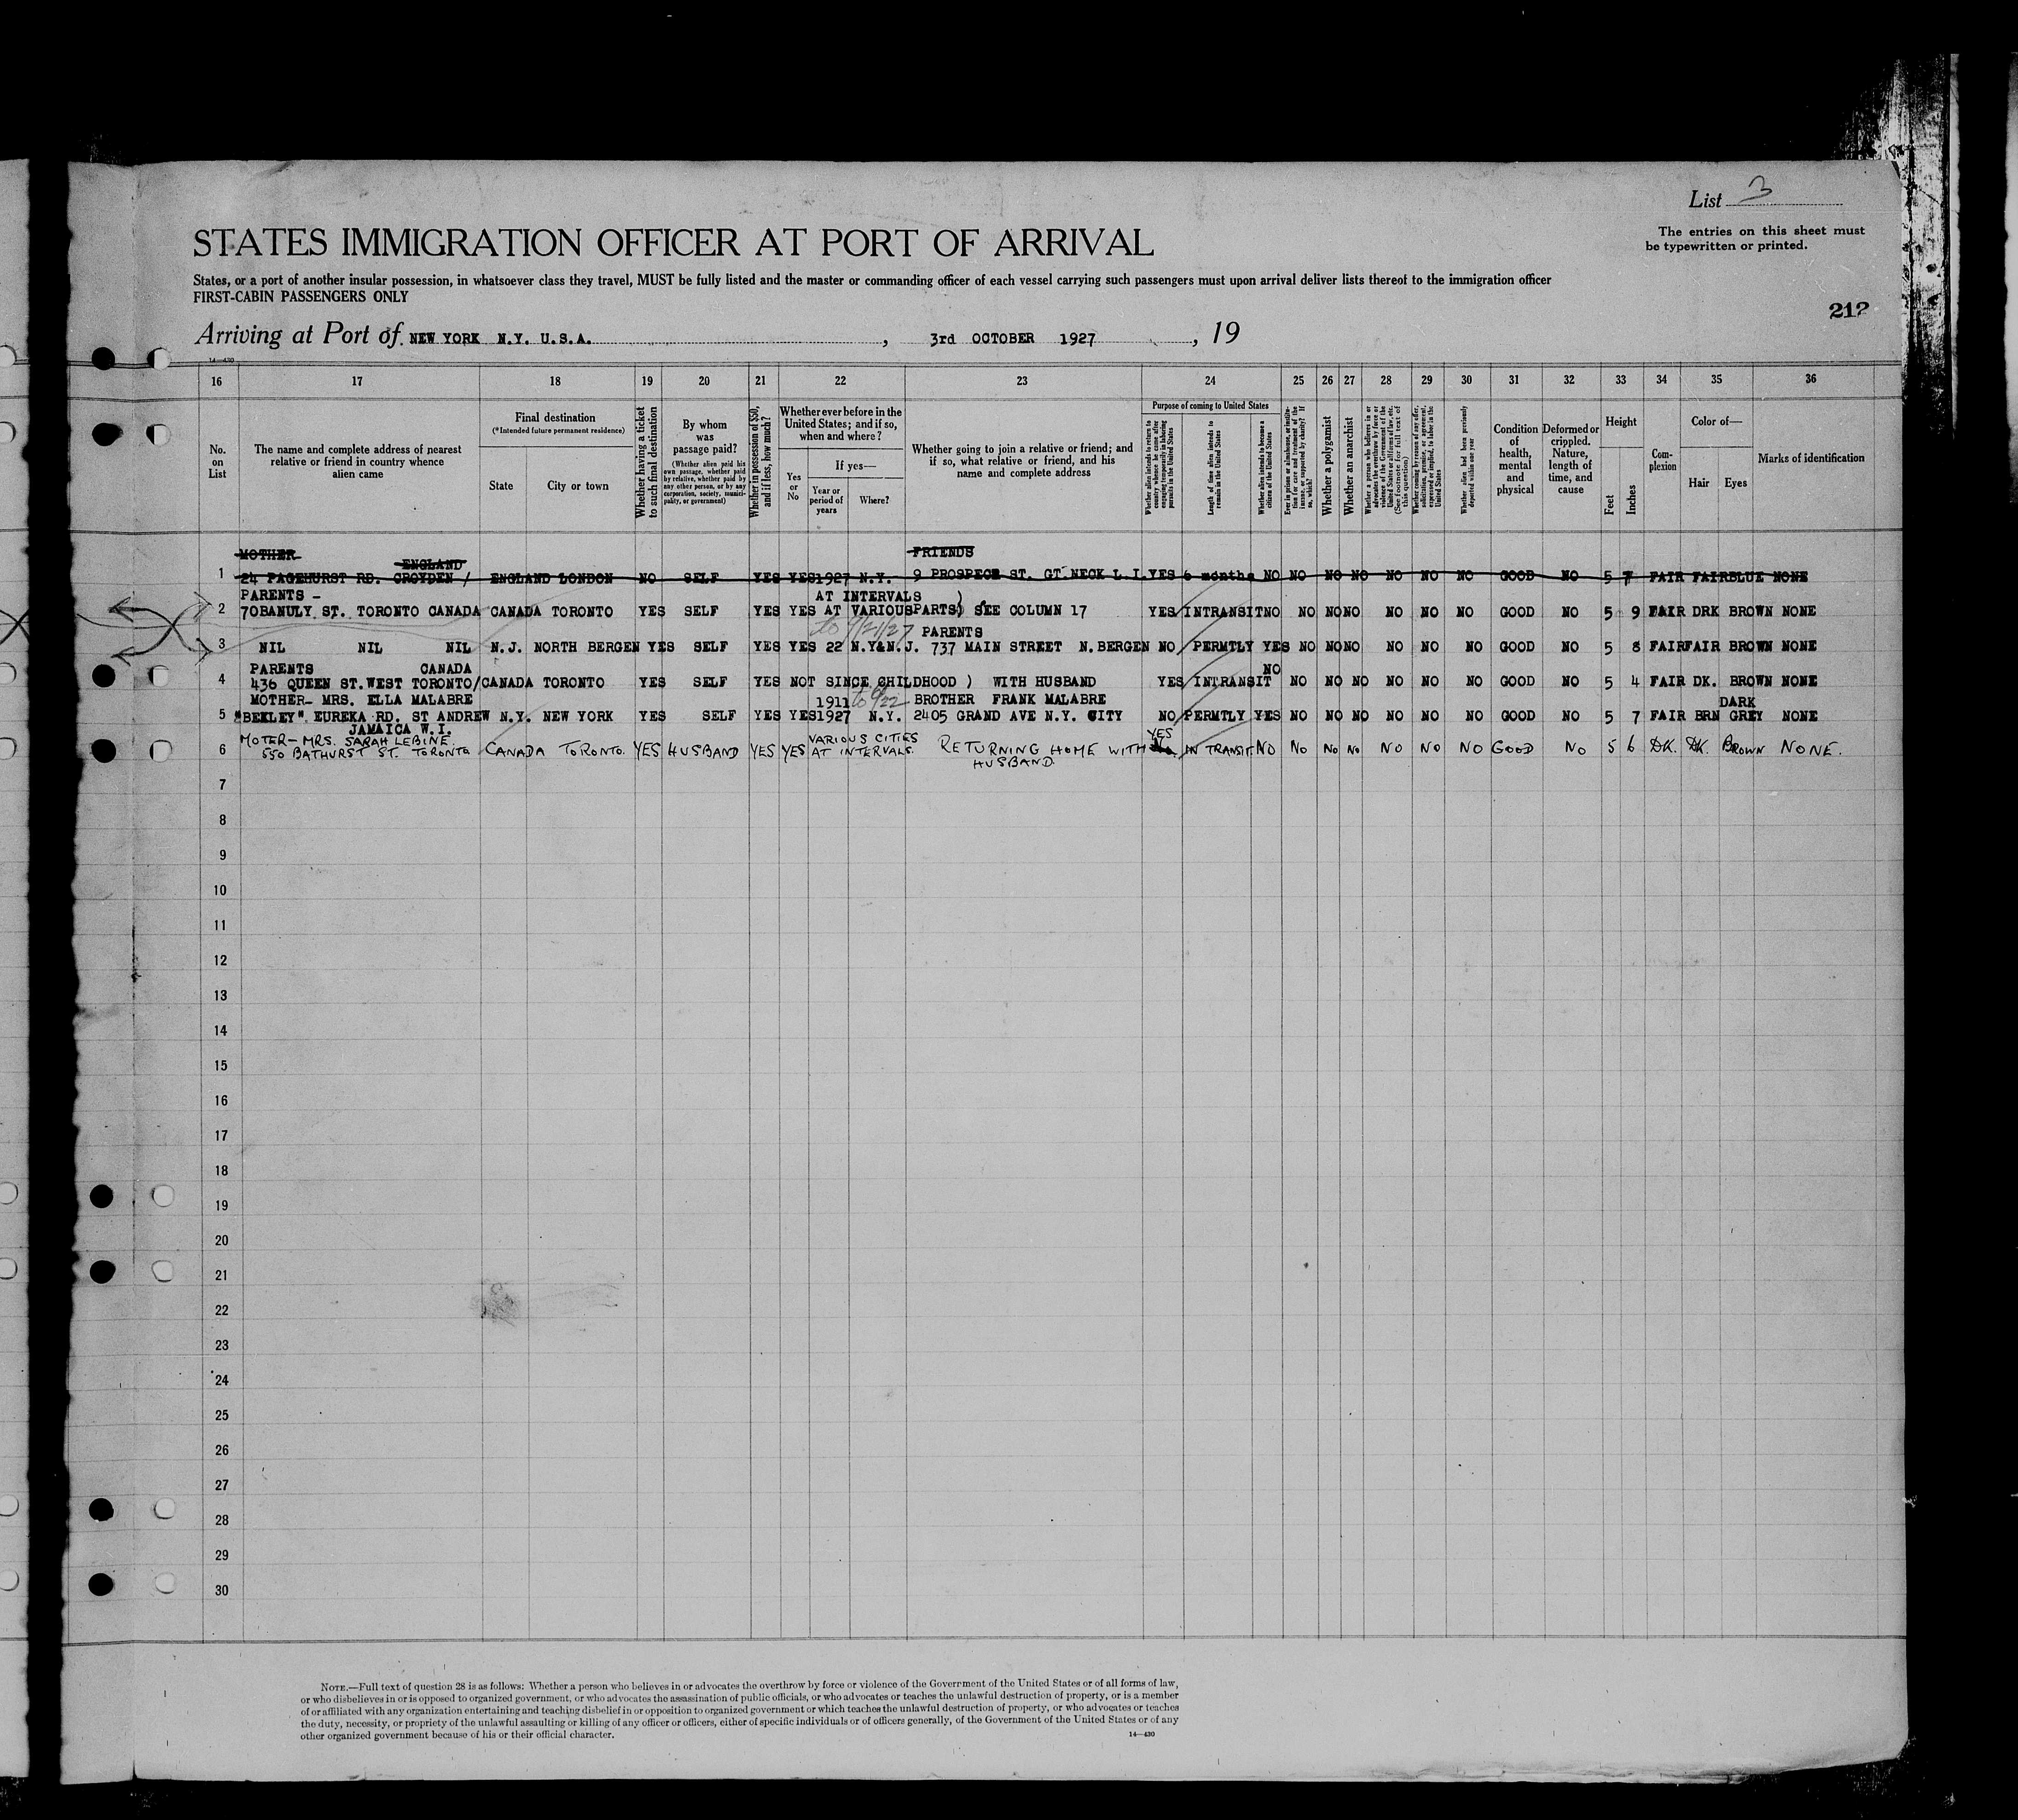 List 3
STATES IMMIGRATION OFFICER AT PORT OF ARRIVAL
The entries on this sheet must
be typewritten or printed.
States, or a port of another insular possession, in whatsoever class they travel, MUST be fully listed and the master or commanding officer of each vessel carrying such passengers must upon arrival deliver lists thereof to the immigration officer
FIRST-CABIN PASSENGERS ONLY
212
Arriving at Port of NEW YORK N.Y. U.S.A. , 3rd OCTOBER 1927 , 19
14—430
16 17 18 19 20 21 22 23 24 25 26 27 28 29 30 31 32 33 34 35 36
No. on List
The name and complete address of nearest relative or friend in country whence alien came
Final destination
(*Intended future permanent residence)
State
City or town
Whether having a ticket to such final destination
By whom was passage paid?
(Whether alien paid his own passage, whether paid by relative, whether paid by any other person, or by any corporation, society, municipality, or government)
Whether in possession of $50, and if less, how much?
Whether ever before in the United States; and if so, when and where?
Yes or No
If yes—
Year or period of years
Where?
Whether going to join a relative or friend; and if so, what relative or friend, and his name and complete address
Purpose of coming to United States
Whether alien intends to return to country whence he came after engaging temporarily in laboring pursuits in the United States
Length of time alien intends to remain in the United States
Whether alien intends to become a citizen of the United States
Ever in prison or almshouse, or institution for care and treatment of the insane, or supported by charity? If so, which?
Whether a polygamist
Whether an anarchist
Whether a person who believes in or advocates the overthrow by force or violence of the Government of the United States or all forms of law, etc. (See footnote for full text of this question)
Whether coming by reason of any offer, solicitation, promise, or agreement, expressed or implied, to labor in the United States
Whether alien had been previously deported within one year
Condition of health, mental and physical
Deformed or crippled. Nature, length of time, and cause
Height
Feet
Inches
Complexion
Color of—
Hair
Eyes
Marks of identification
MOTHER ENGLAND FRIENDS
1 24 PAGEHURST RD. CROYDEN / ENGLAND LONDON NO SELF YES YES 1927 N.Y. 9 PROSPECE ST. GT NECK L.I. YES 6 months NO NO NO NO NO NO NO GOOD NO 5 7 FAIR FAIR BLUE NONE
PARENTS - AT INTERVALS )
2 70BANULY ST. TORONTO CANADA CANADA TORONTO YES SELF YES YES AT VARIOUS PARTS) SEE COLUMN 17 YES INTRANSIT NO NO NO NO NO NO NO GOOD NO 5 9 FAIR DRK BROWN NONE
to 7/21/27 PARENTS
3 NIL NIL NIL N.J. NORTH BERGEN YES SELF YES YES 22 N.Y&N.J. 737 MAIN STREET N.BERGEN NO PERMTLY YES NO NO NO NO NO NO GOOD NO 5 8 FAIR FAIR BROWN NONE
PARENTS CANADA NO
4 436 QUEEN ST.WEST TORONTO/CANADA TORONTO YES SELF YES NOT SINCE CHILDHOOD ) WITH HUSBAND YES INTRANSIT NO NO NO NO NO NO GOOD NO 5 4 FAIR DK. BROWN NONE
MOTHER- MRS. ELLA MALABRE 1911 BROTHER FRANK MALABRE DARK
5 "BEKLEY". EUREKA RD. ST ANDREW N.Y. NEW YORK YES SELF YES YES 1927 N.Y. 2405 GRAND AVE N.Y. CITY NO PERMTLY YES NO NO NO NO NO NO GOOD NO 5 7 FAIR BRN GREY NONE
JAMAICA W.I.
MOTER- MRS. SARAH LEBINE VARIOUS CITIES YES
6 550 BATHURST ST. TORONTO CANADA TORONTO. YES HUSBAND YES YES AT INTERVALS. RETURNING HOME WITH No IN TRANSIT NO NO NO NO NO NO NO GOOD NO 5 6 DK. DK. BROWN NONE.
HUSBAND.
7
8
9
10
11
12
13
14
15
16
17
18
19
20
21
22
23
24
25
26
27
28
29
30
NOTE.—Full text of question 28 is as follows: Whether a person who believes in or advocates the overthrow by force or violence of the Government of the United States or of all forms of law,
or who disbelieves in or is opposed to organized government, or who advocates the assassination of public officials, or who advocates or teaches the unlawful destruction of property, or is a member
of or affiliated with any organization entertaining and teaching disbelief in or opposition to organized government or which teaches the unlawful destruction of property, or who advocates or teaches
the duty, necessity, or propriety of the unlawful assaulting or killing of any officer or officers, either of specific individuals or of officers generally, of the Government of the United States or of any
other organized government because of his or their official character.
14—430